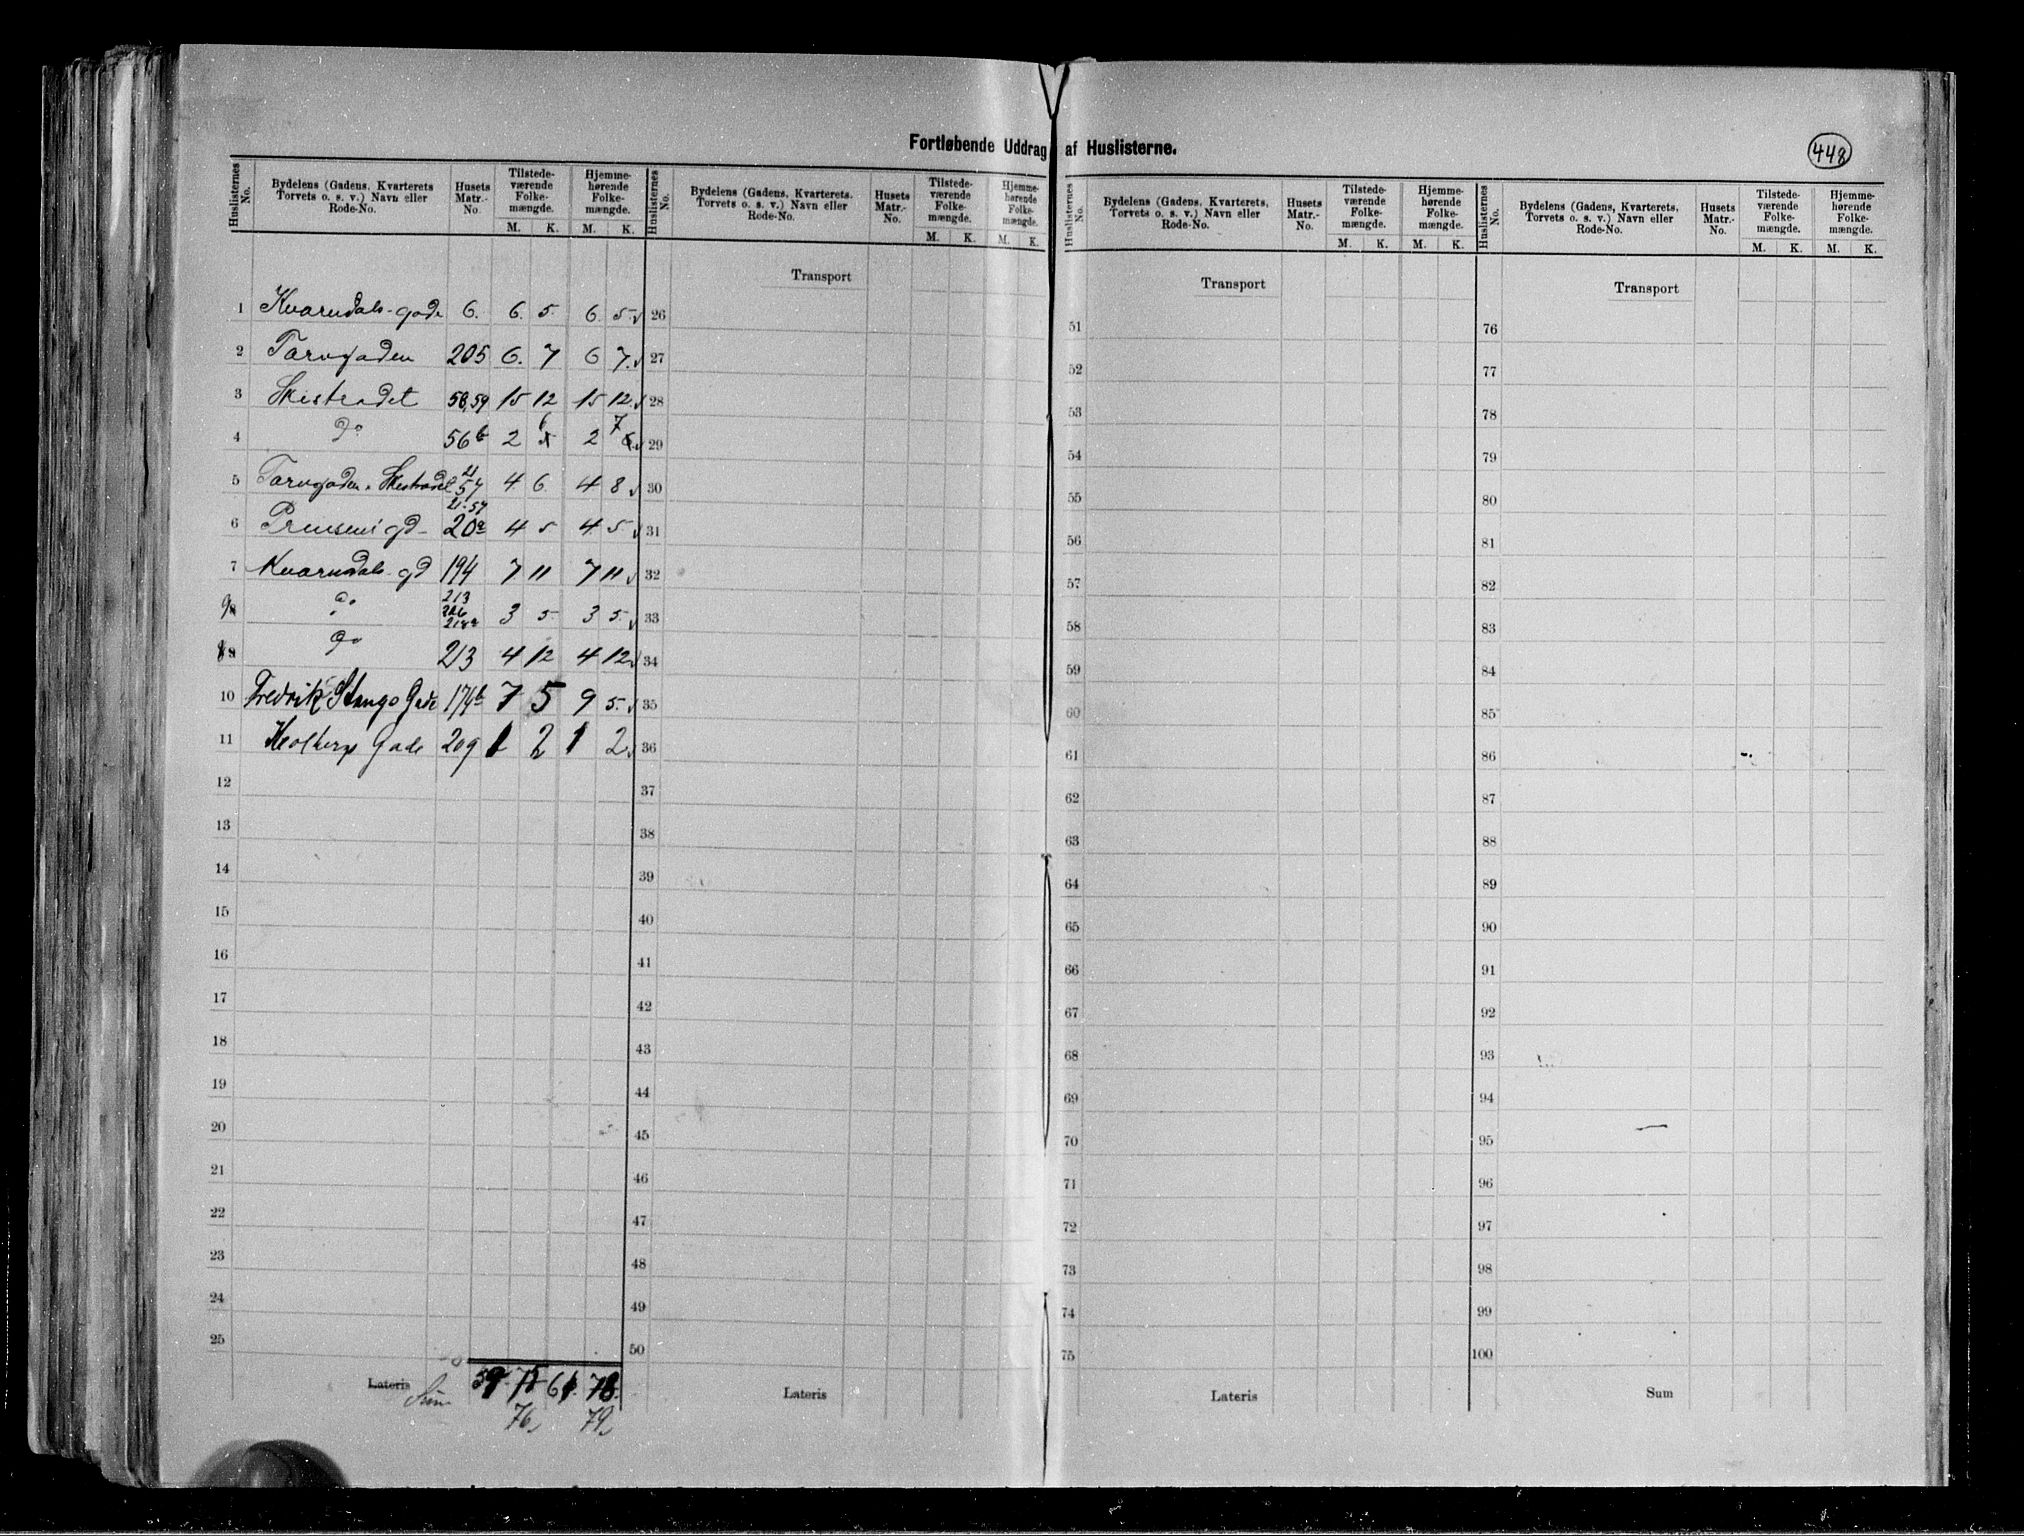 Fortløbende Uddrag af Huslisterne.
448
Huslisternes No. Bydelens (Gadens, Kvarterets Torvets o. s. v.) Navn eller Rode-No. Husets Matr.-No Tilstede-værende Folke-mængde. M. K. Hjemme-hørende Folke-mængde. M. K.
1 Kvarndals-gade 6. 6. 5 6. 5
2 Torvgaden 205 6. 7 6 7.
3 Skistredet 58,59 15 12 15 12
4 Do 56b 2 6 2 7
5 Torvgaden, Skistredet 21 57 4 6. 4 8
6 Prinsens gd 21-57 20a 4 5 4. 5
7 Kvarndals-gd 194 7 11 7 11
9 do 213 206 218a 3 5 3 5.
8 do 213 4 12 4 12
10 Fredrik Stangs Gade 174b 7 5 9 5.
11 Holbergs Gade 209 1 2 1 2
12
13
14
15
16
17
18
19
20
21
22
23
24
25
Lateris Sum 59 75 61 78.
76 79
Huslisternes No. Bydelens (Gadens, Kvarterets, Torvets o. s. v.) Navn eller Rode-No. Husets Matr.-No. Tilstede-værende Folke-mængde. M. K. Hjemme-hørende Folke-mængde. M. K.
Transport
26
27
28
29
30
31
32
33
34
35
36
37
38
39
40
41
42
43
44
45
46
47
48
49
50
Lateris
Huslisternes No. Bydelens (Gadens, Kvarterets, Torvets o. s. v.) Navn eller Rode-No. Husets Matr.-No. Tilstede-værende Folke-mængde. M. K. Hjemme-hørende Folke-mængde. M. K.
Transport
51
52
53
54
55
56
57
58
59
60
61
62
63
64
65
66
67
68
69
70
71
72
73
74
75
Lateris
Huslisternes No. Bydelens (Gadens, Kvarterets, Torvets o. s. v.) Navn eller Rode-No. Husets Matr.-No. Tilstede-værende Folke-mængde. M. K. Hjemme-hørende Folke-mængde. M. K.
Transport
76
77
78
79
80
81
82
83
84
85
86
87
88
89
90
91
92
93
94
95
96
97
98
99
100
Sum